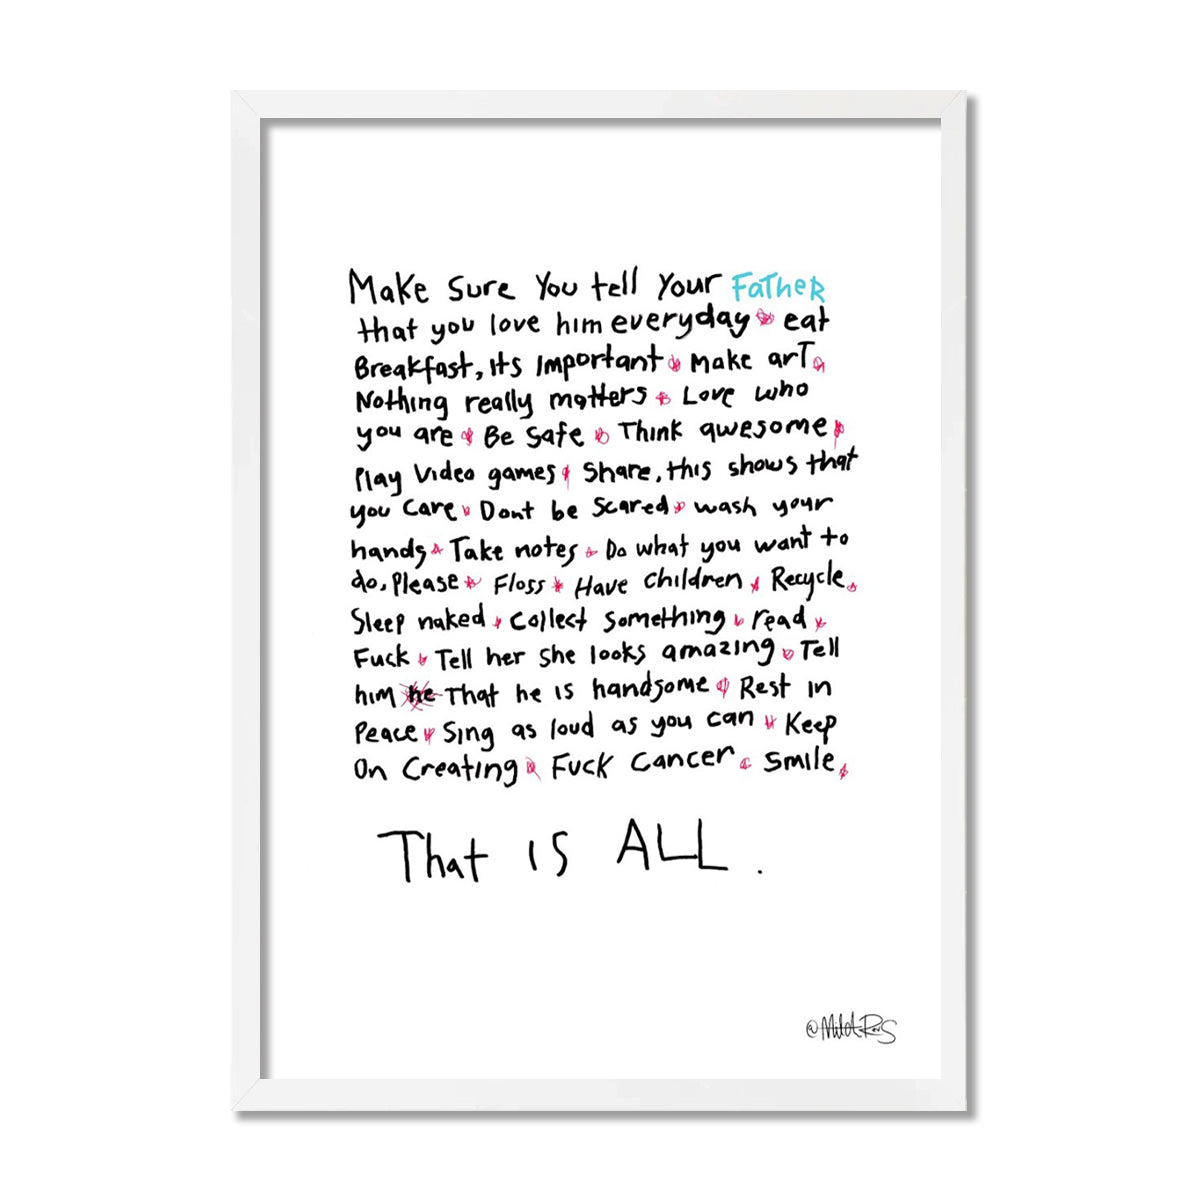 Make Sure You tell Your Father
that you love him everyday eat
Breakfast, its Important make art
Nothing really matters Love who
you are Be Safe Think awesome
Play Video games Share, this shows that
you Care Dont be Scared wash your
hands Take notes Do what you want to
do, Please Floss Have children Recycle
Sleep naked Collect something read
Fuck Tell her she looks amazing Tell
him he That he is handsome Rest in
Peace Sing as loud as you can Keep
On Creating Fuck Cancer Smile
That IS ALL.